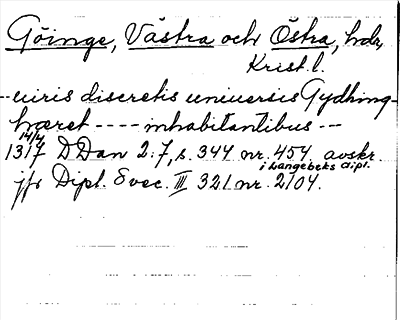 Göinge, Västra och Östra, hdr,
Krist.l.
--uiris discretis uniuersis Gydhing-
hæret ---- inhabitantibus ---
14/4
1317 DDan 2:7, s. 344 nr. 454 avskr.
i Langebeks dipl.
jfr Dipl. Svec. III 321 nr. 2104.